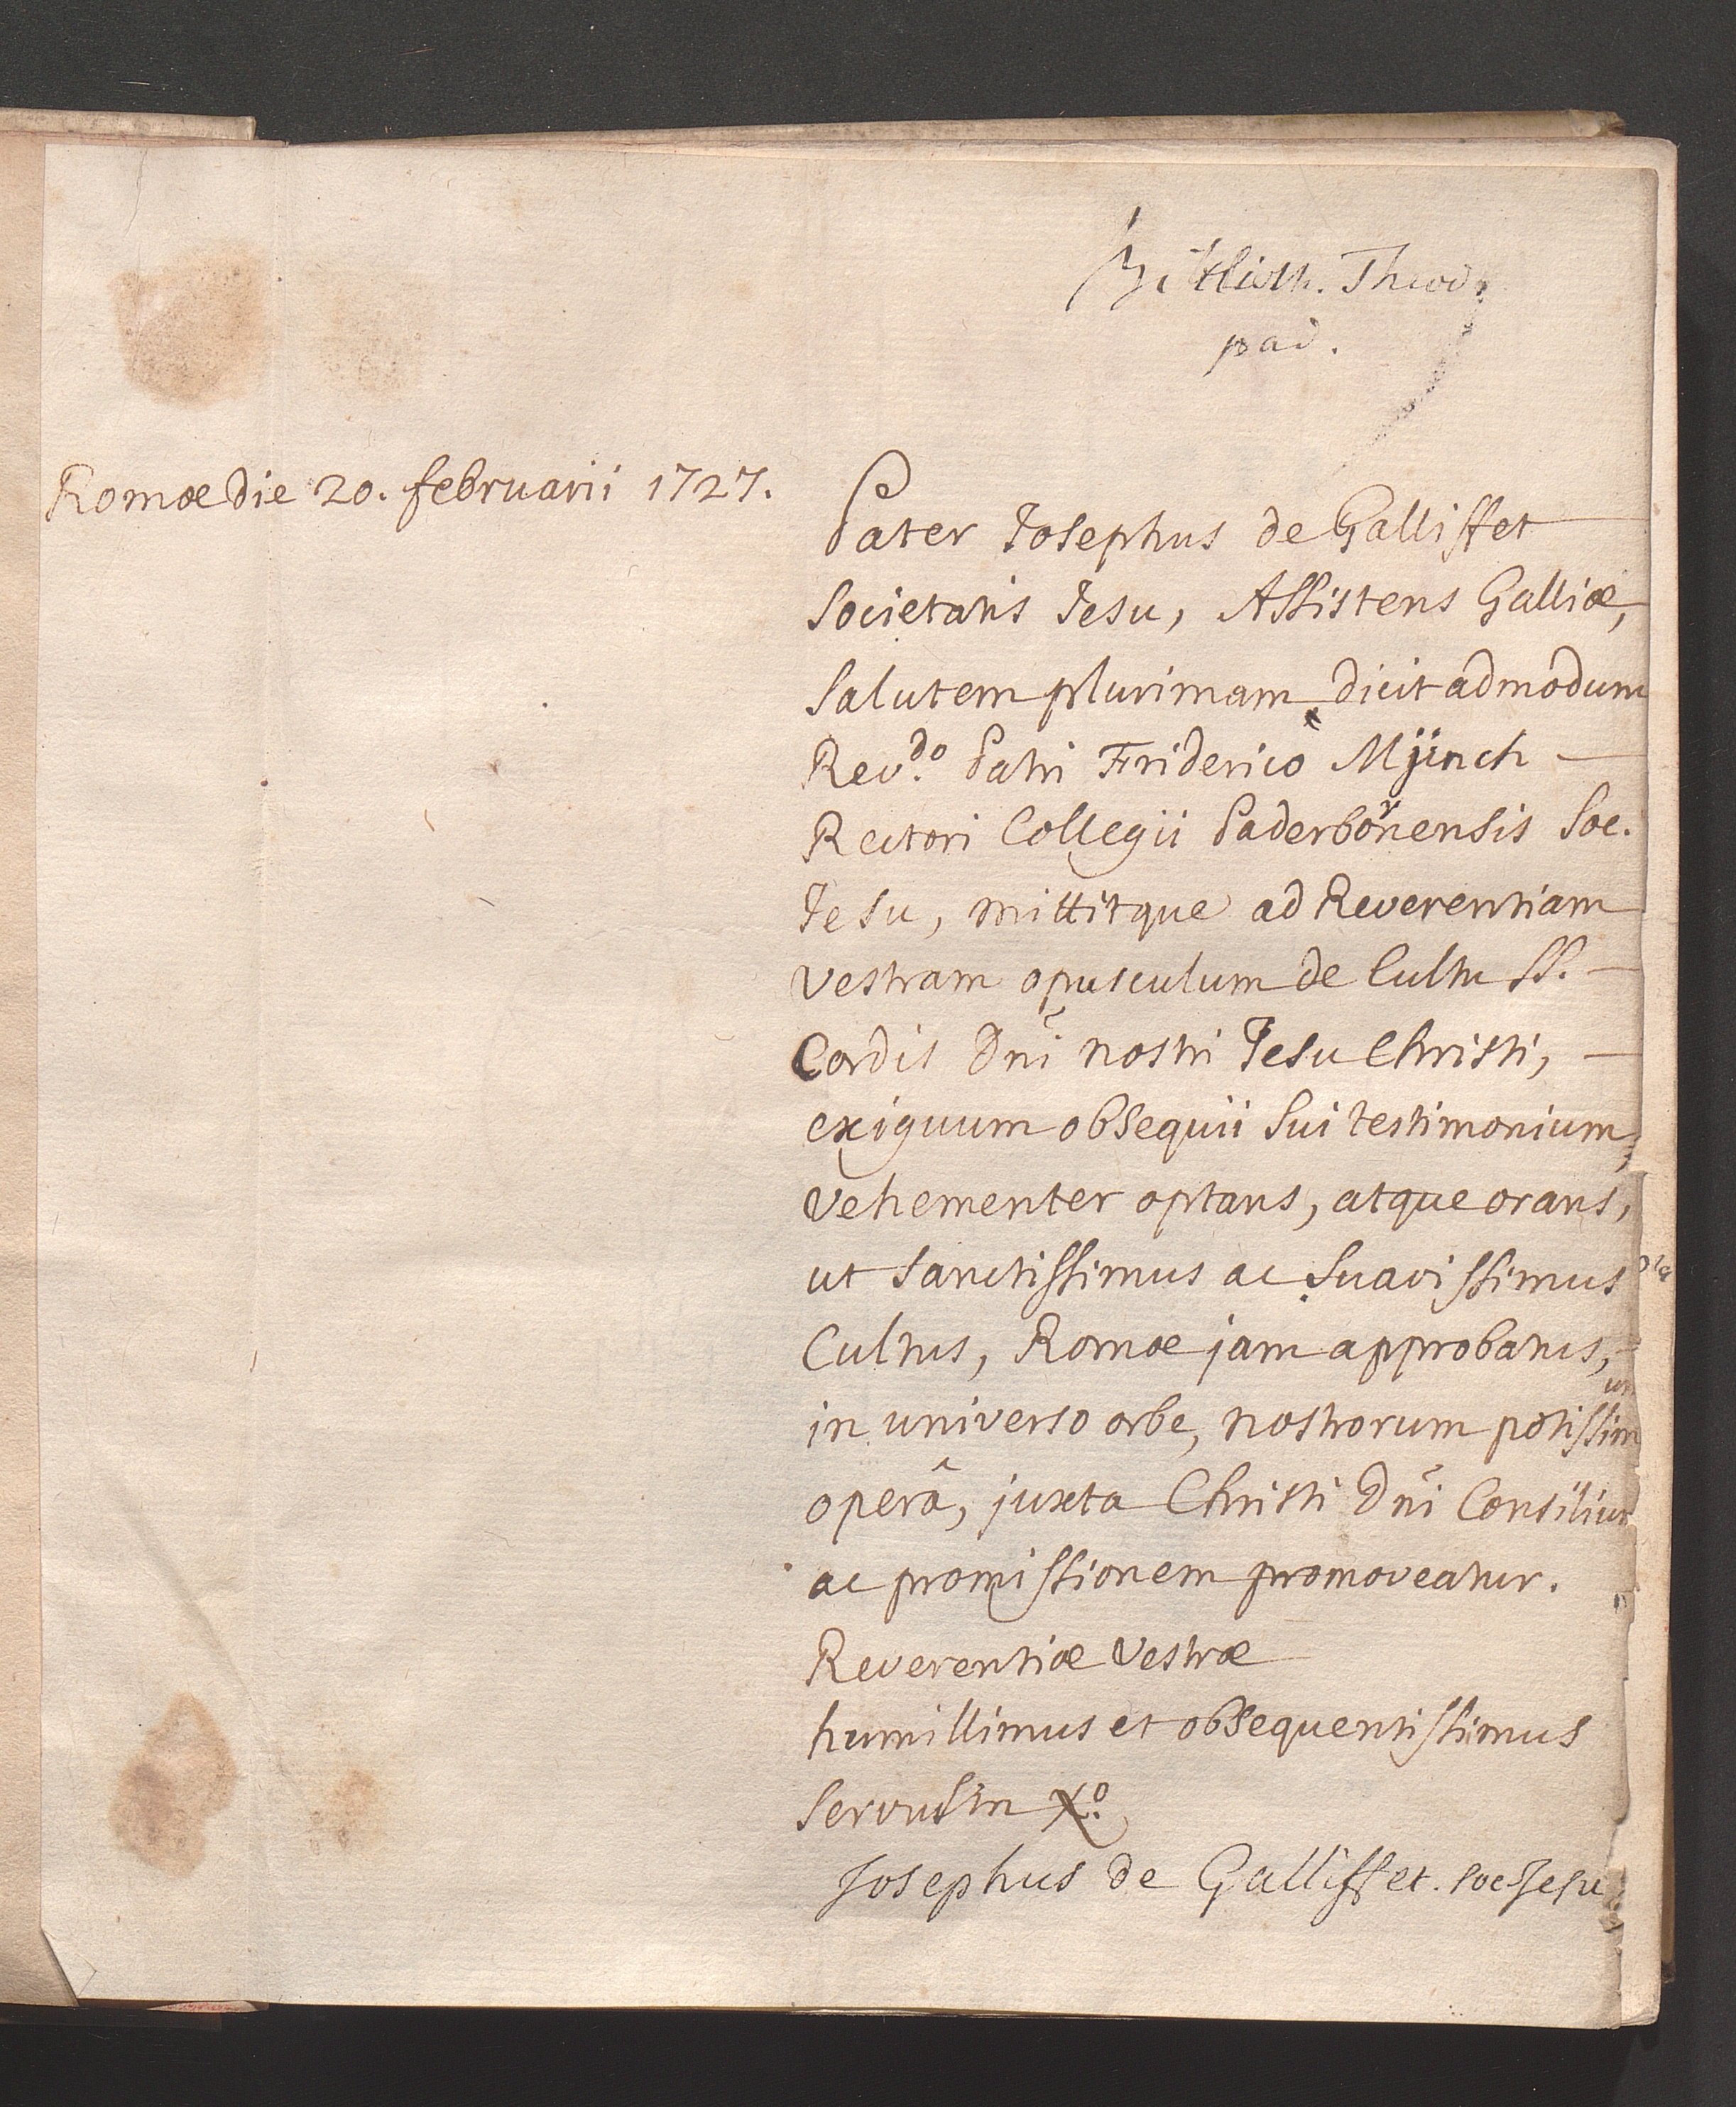 Biblioth. Theod.
pad.
Romæ die 20. februarii 1727.
Pater Josephus de Galliffet
Societatis Jesu, Assistens Galliæ,
Salutem plurimam dicit admodum
Rev.do Patri Friderico Mÿinch
Rectori Collegii Paderbornensis Soc.
Jesu, mittitque ad Reverentiam
vestram opusculum de Cultu SS.
Cordis Dnĩ nostri Jesu Christi,
exiguum obsequii Sui testimonium,
vehementer optans, atque orans,
ut Sanctissimus ac Suavissimus
Cultus, Romæ jam approbatus,
in universo orbe, nostrorum potissimum
operâ, juxta Christi Dnĩ Consilium
ac promissionem promoveatur.
Reverentiæ Vestræ
humillimus et obsequentissimus
Servus in X.o
Josephus de Galliffet. Soc Jesu